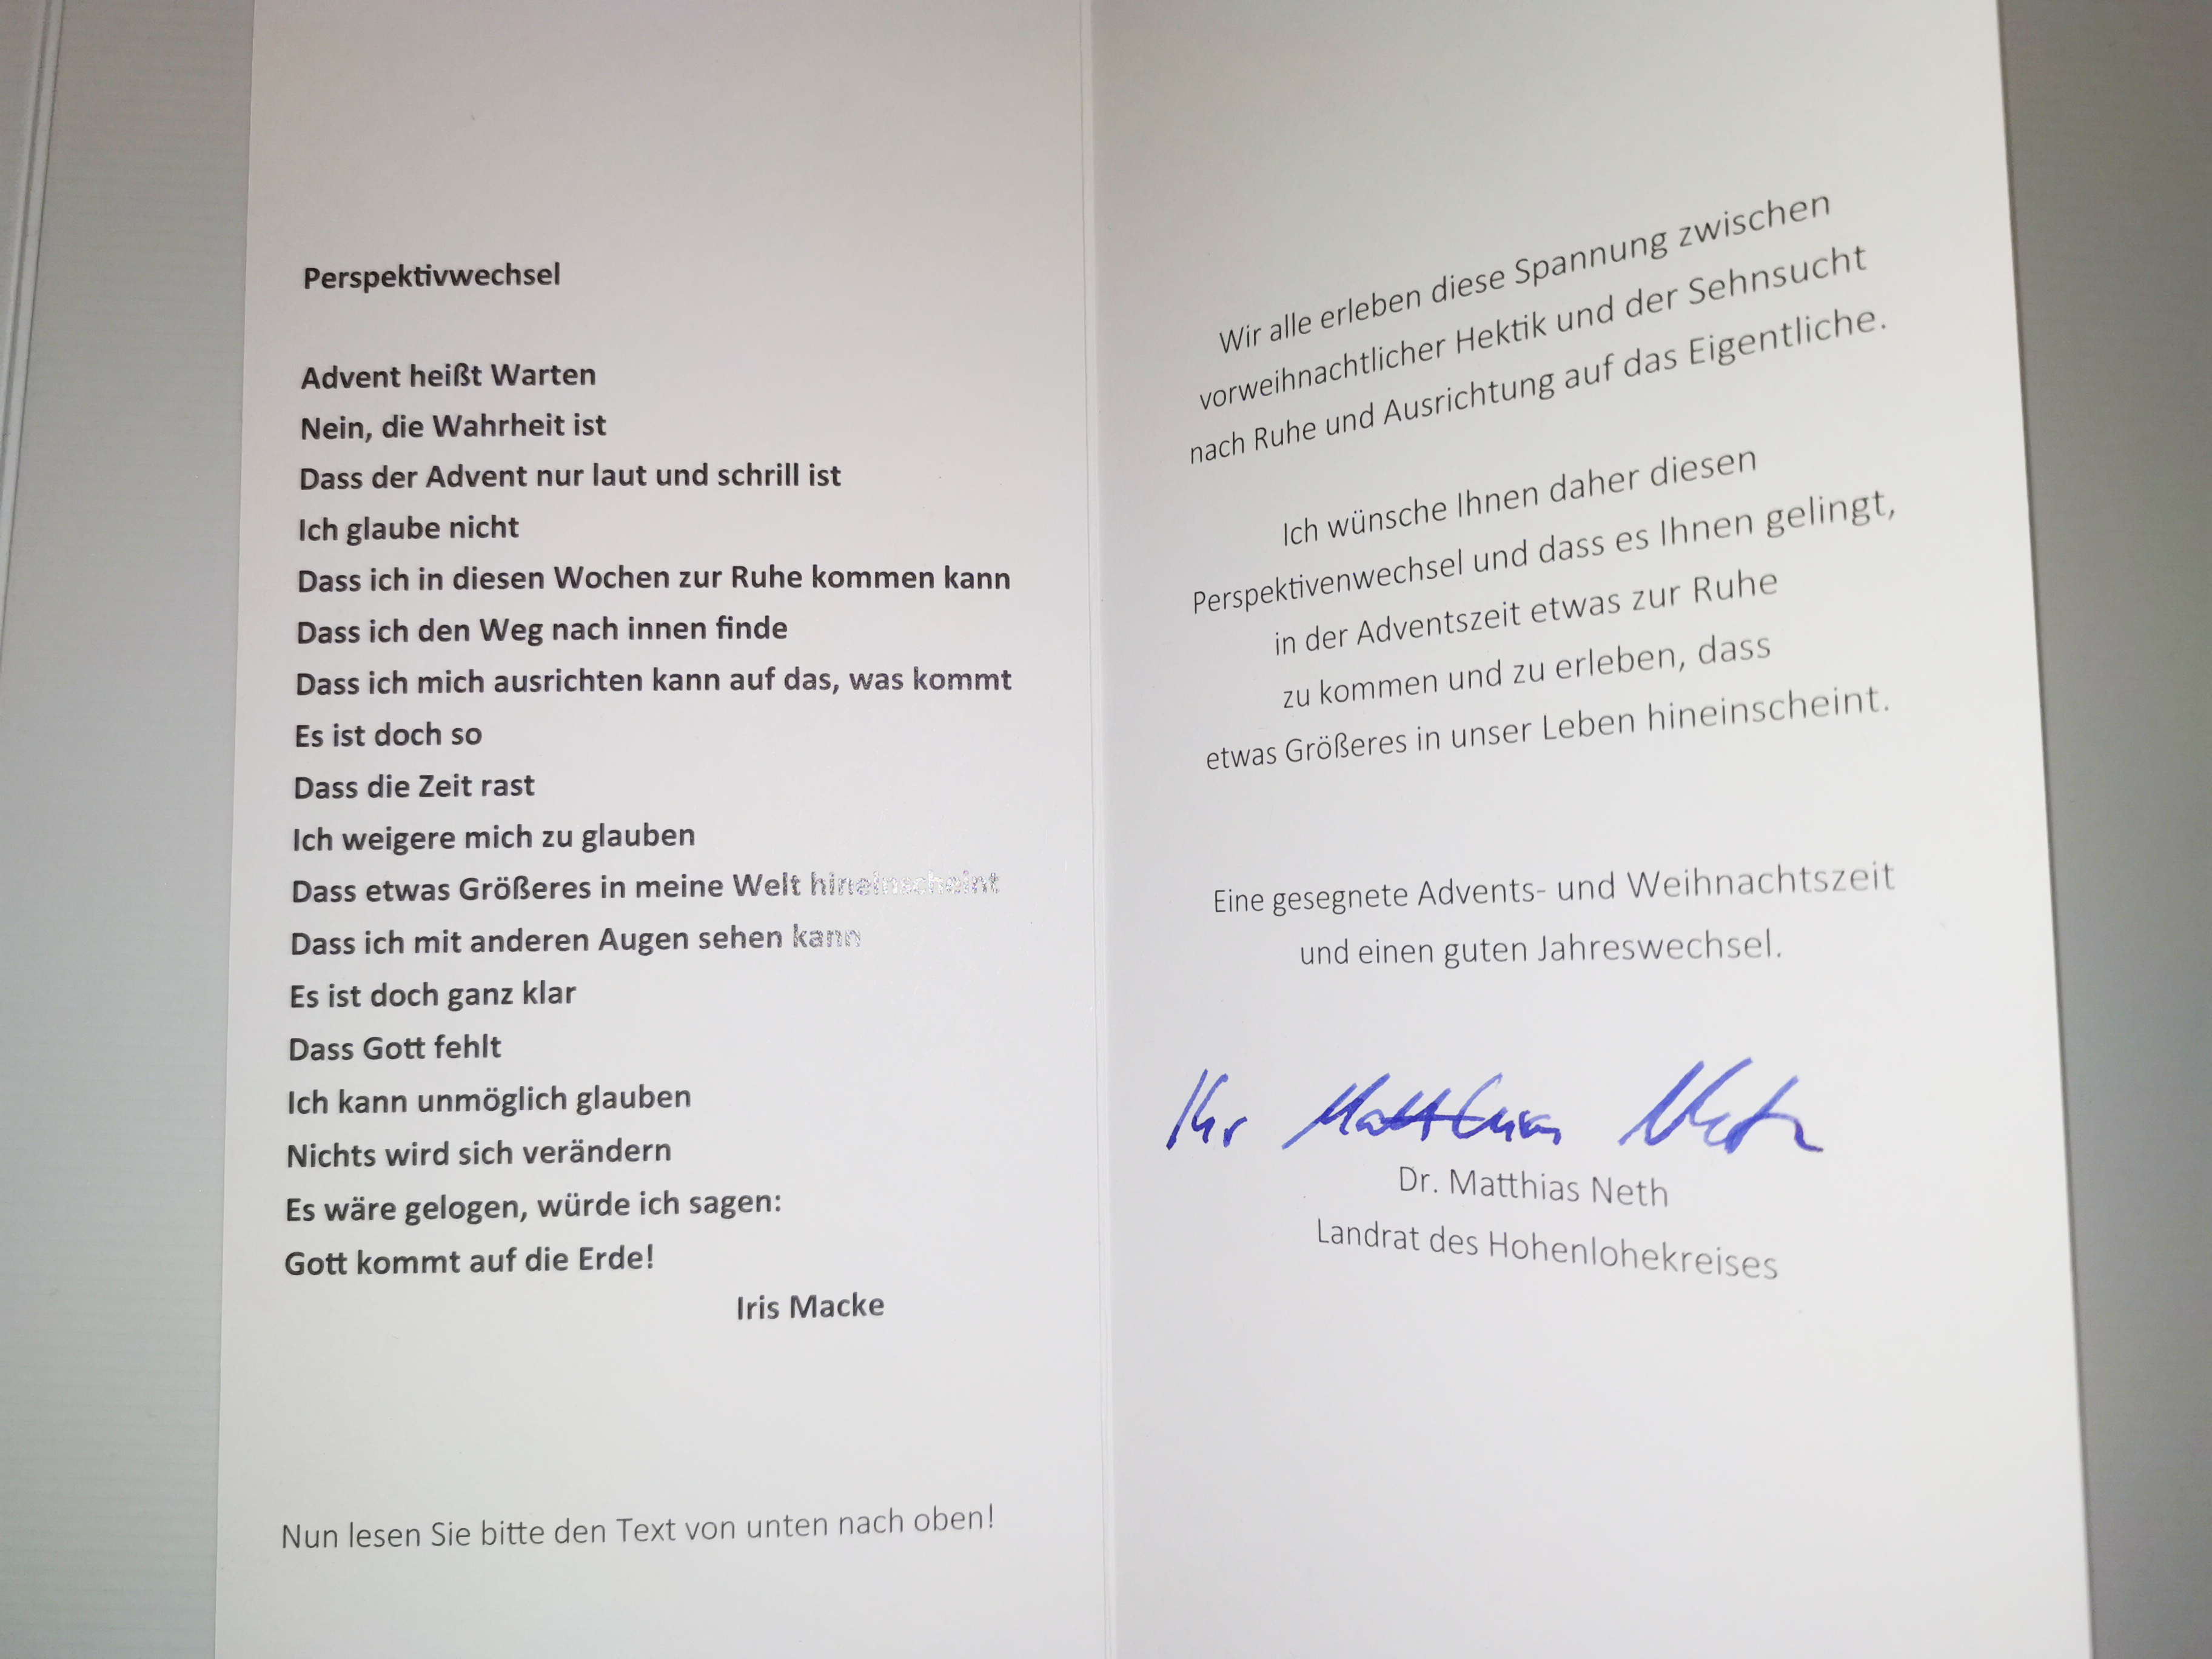 Perspektivwechsel
Advent heißt Warten
Nein, die Wahrheit ist
Dass der Advent nur laut und schrill ist
Ich glaube nicht
Dass ich in diesen Wochen zur Ruhe kommen kann
Dass ich den Weg nach innen finde
Dass ich mich ausrichten kann auf das, was kommt
Es ist doch so
Dass die Zeit rast
Ich weigere mich zu glauben
Dass etwas Größeres in meine Welt hineinscheint
Dass ich mit anderen Augen sehen kann
Es ist doch ganz klar
Dass Gott fehlt
Ich kann unmöglich glauben
Nichts wird sich verändern
Es wäre gelogen, würde ich sagen:
Gott kommt auf die Erde!
Iris Macke
Nun lesen Sie bitte den Text von unten nach oben!
Wir alle erleben diese Spannung zwischen
vorweihnachtlicher Hektik und der Sehnsucht
nach Ruhe und Ausrichtung auf das Eigentliche.
Ich wünsche Ihnen daher diesen
Perspektivenwechsel und dass es Ihnen gelingt,
in der Adventszeit etwas zur Ruhe
zu kommen und zu erleben, dass
etwas Größeres in unser Leben hineinscheint.
Eine gesegnete Advents- und Weihnachtszeit
und einen guten Jahreswechsel.
Ihr Matthias Neth
Dr. Matthias Neth
Landrat des Hohenlohekreises